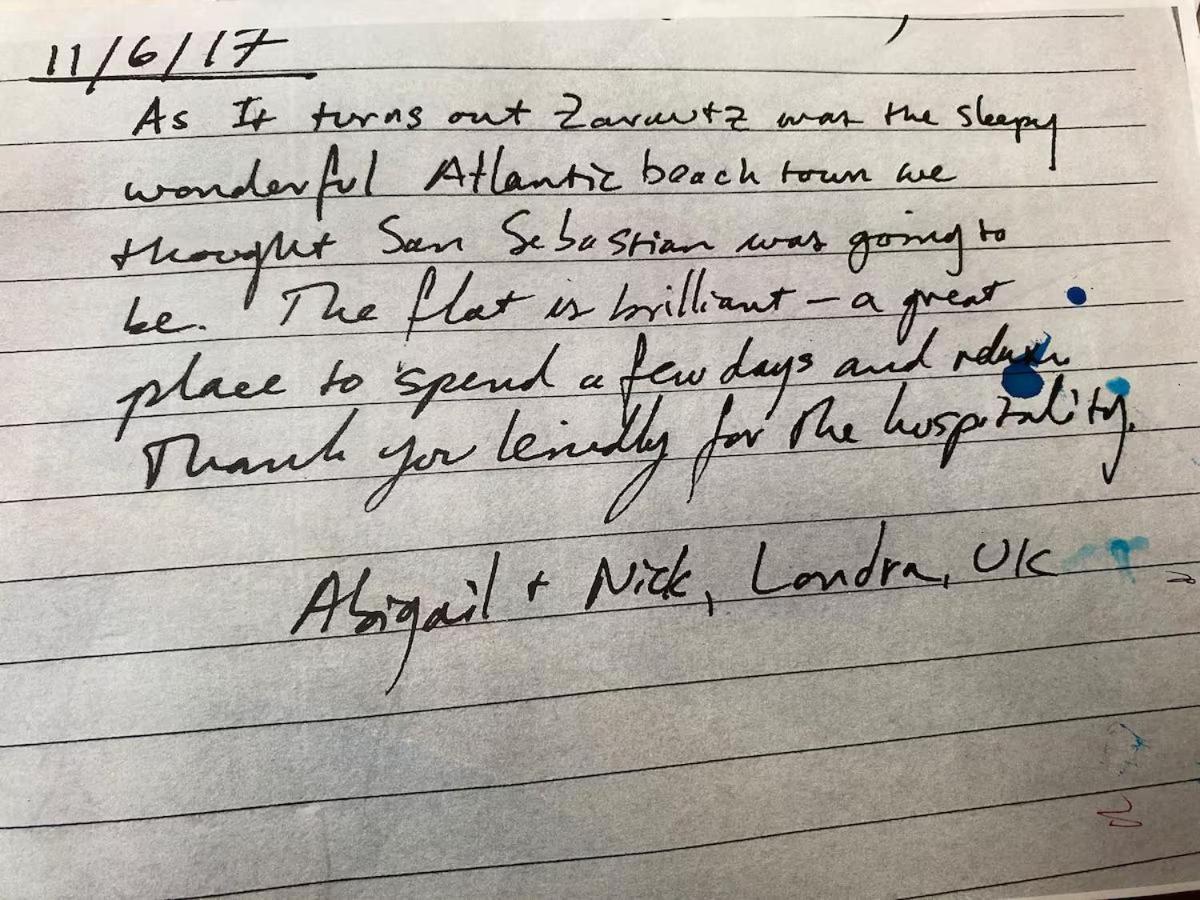 11/6/17
As It turns out Zarautz was the sleepy
wonderful Atlantic beach town we
thought San Sebastian was going to
be. The flat is brilliant – a great
place to spend a few days and relax.
Thank you kindly for the hospitality.
Abigail + Nick, Londra, UK